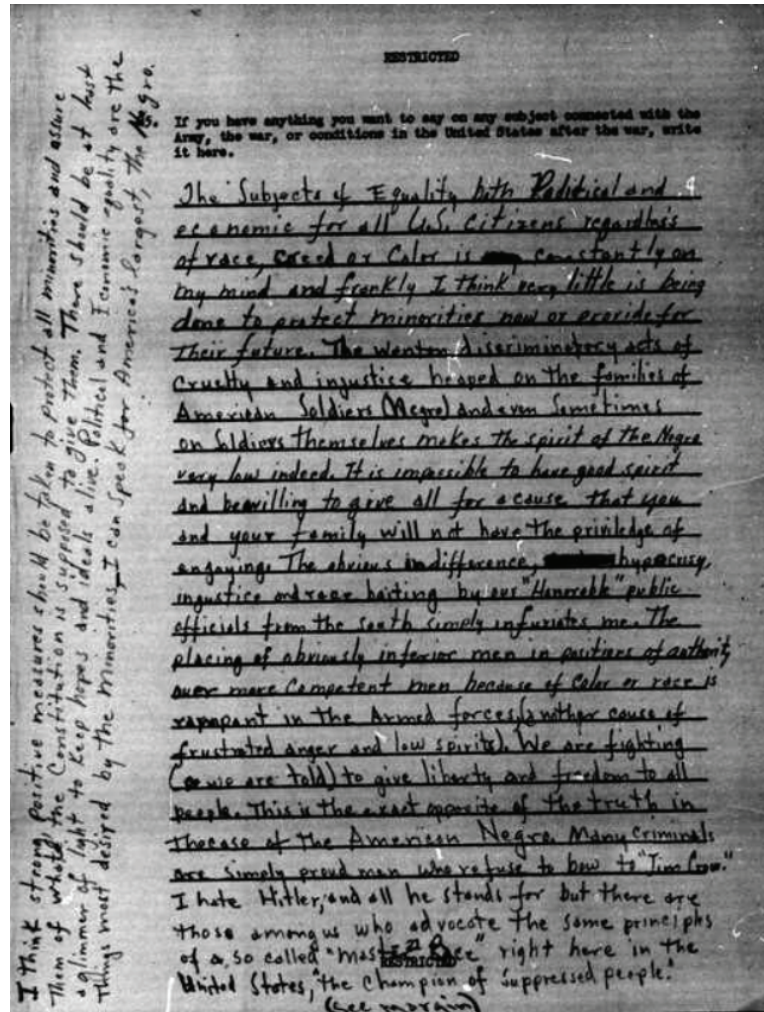 RESTRICTED
If you have anything you want to say on any subject connected with the
Army, the war, or conditions in the United States after the war, write
it here.
The Subjects of Equality both Political and
economic for all U.S. Citizens regardless
of race, creed or Color is constantly on
my mind and frankly I think very little is being
done to protect minorities now or provide for
Their future. The wanton discriminatory acts of
Cruelty and injustice heaped on the families of
American Soldiers (Negro) and even Sometimes
on Soldiers themselves makes the spirit of the Negro
very low indeed. It is impossible to have good spirit
and be willing to give all for a cause that you
and your family will not have the priviledge of
enjoying. The obvious indifference, hypocrisy,
injustice and race baiting by our "Honorable" public
officials from the south simply infuriates me. The
placing of obviously inferior men in positions of authority
over more Competent men because of Color or race is
rampant in the Armed forces, (another cause of
frustrated anger and low spirits). We are fighting
(so we are told) to give liberty and freedom to all
people. This is the exact opposite of the truth in
the case of the American Negro. Many Criminals
are simply proud men who refuse to bow to "Jim Crow."
I hate Hitler, and all he stands for but there are
those among us who advocate the same principles
of a so called "Master Race" right here in the
21
RESTRICTED
United States, "the Champion of Suppressed people."
(see margin)
I think strong, positive measures should be taken to protect all minorities and assure
them of what the Constitution is supposed to give Them. There should be at least
a glimmer of light to keep hopes and ideals alive. Political and Economic equality are the
things most desired by the minorities, I can speak for America's largest, the Negro.